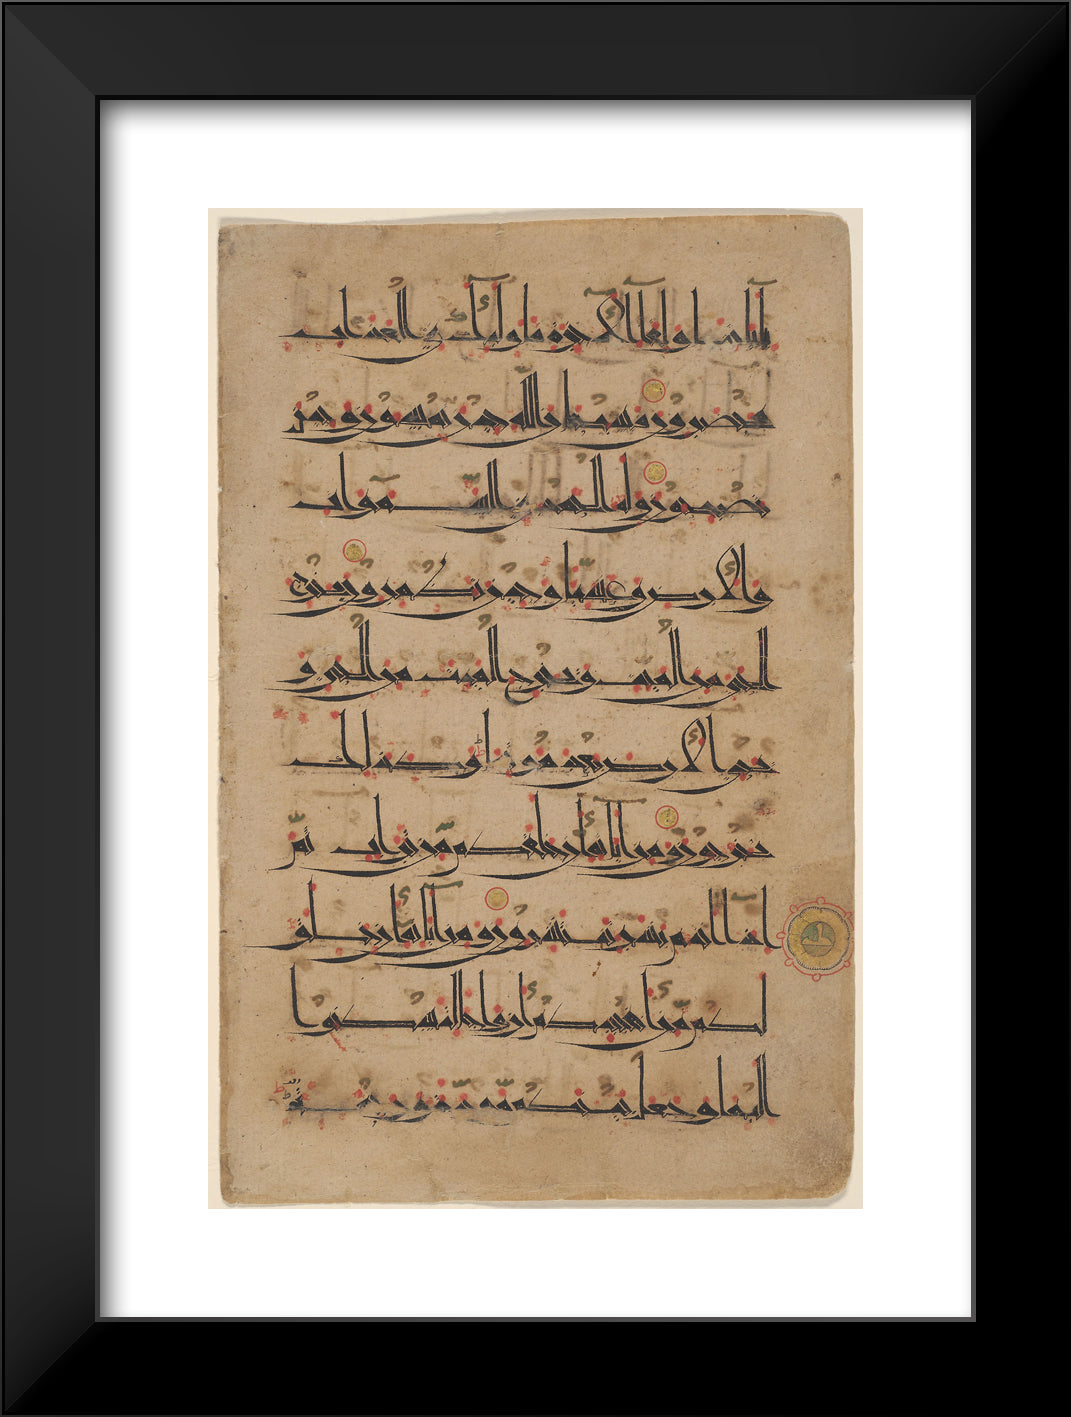 بآياتنا ولقاء الآخرة فأولئك في العذاب
محضرون فسبحان الله حين تمسون وحين
تصبحون وله الحمد في السموات
والأرض وعشيا وحين تظهرون يخرج
الحي من الميت ويخرج الميت من الحي و
يحي الأرض بعد موتها وكذلك
تخرجون ومن آياته أن خلقكم من تراب ثم
إذا أنتم بشر تنتشرون ومن آياته أن خلق
لكم من أنفسكم أزواجا لتسكنوا
إليها وجعل بينكم مودة ورحمة